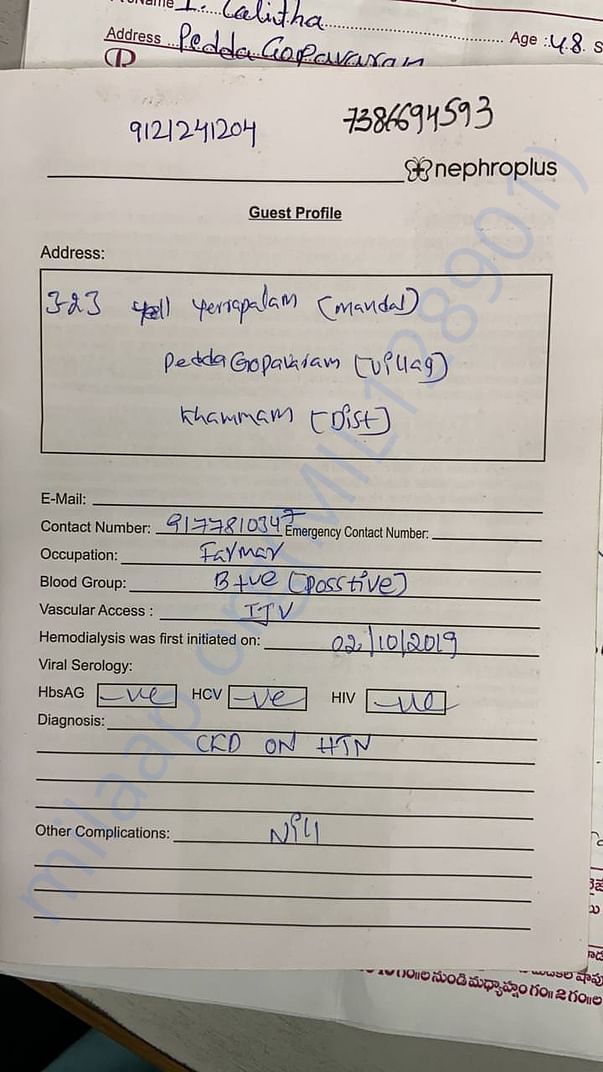 Name I. Lalitha
Address Pedda Gopavaram Age : 48. S
9121241204 7386694593
nephroplus
Guest Profile
Address:
3-23 yerrapalam (mandal)
Pedda Gopavaram (villag)
Khammam (Dist)
E-Mail:
Contact Number: 9177810347 Emergency Contact Number:
Occupation: Farmar
Blood Group: B+ve (posstive)
Vascular Access : IJV
Hemodialysis was first initiated on: 02/10/2019
Viral Serology:
HbsAG -ve HCV -ve HIV -ve
Diagnosis:
CKD ON HTN
Other Complications: Nill
నుండి మధ్యాహ్నం గం॥ 2 గం॥ల
milaap.org(MIL128901)